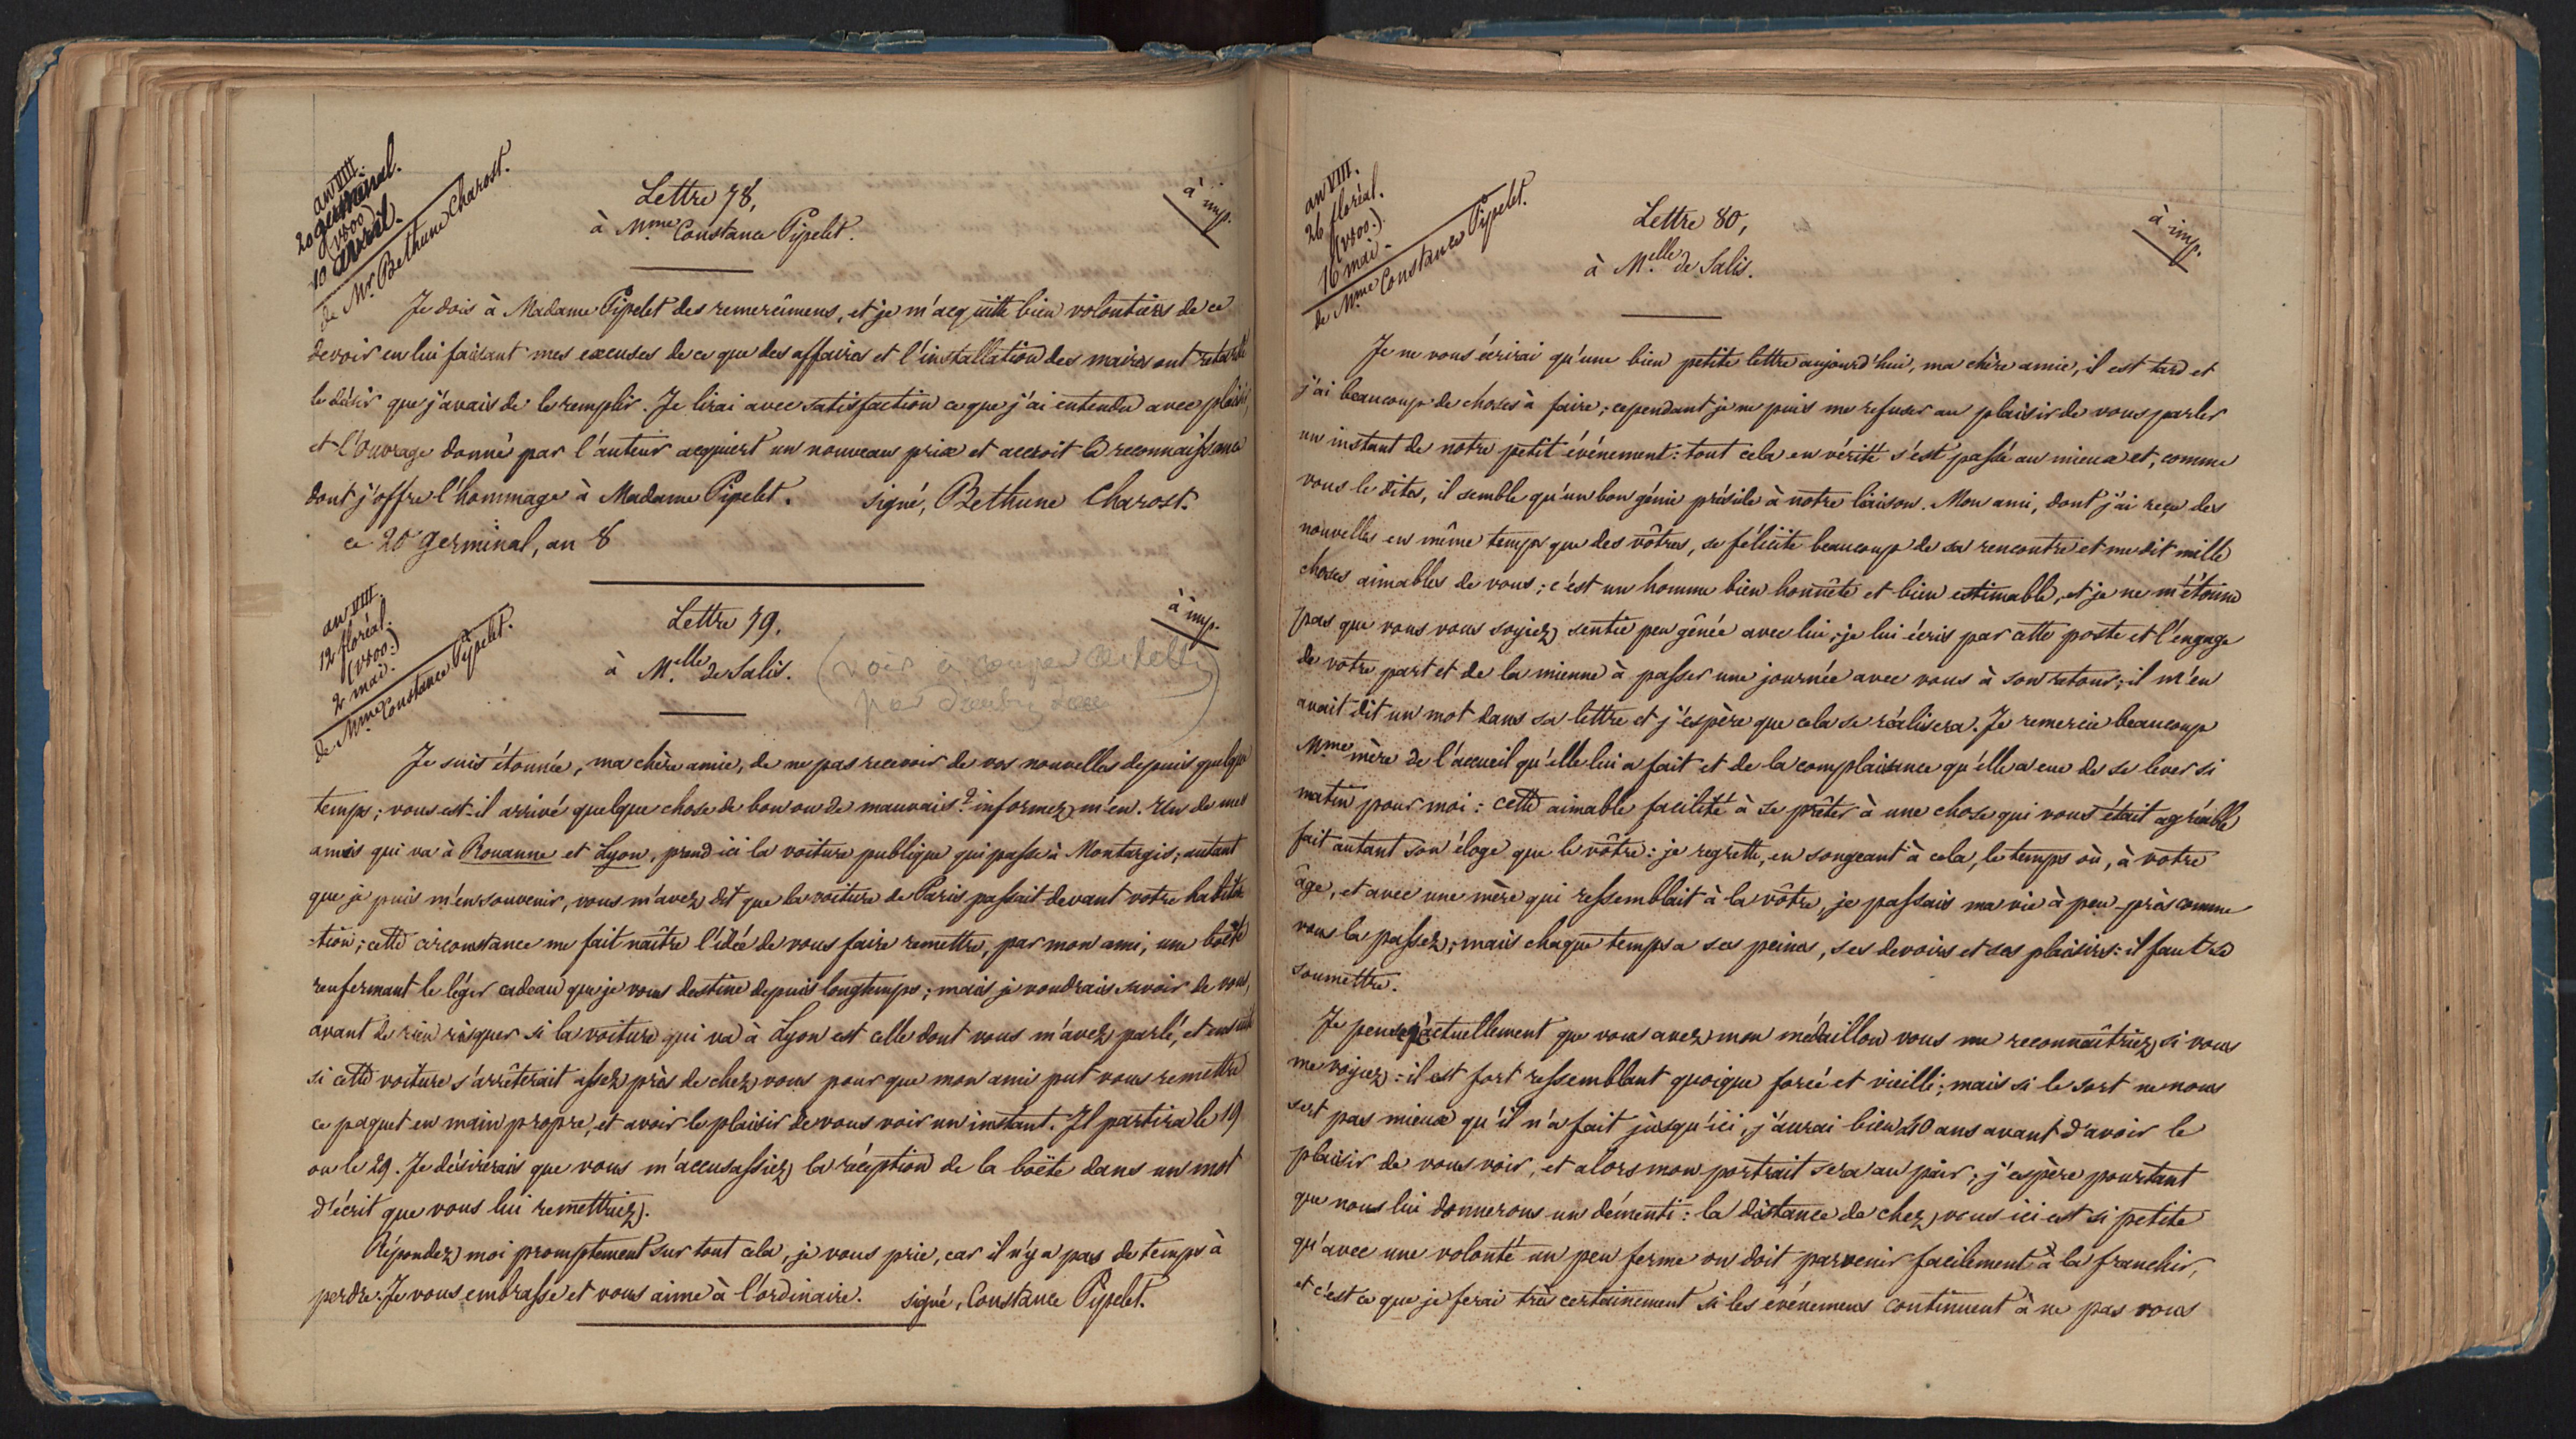 an VIII.
20 germinal.
(1800)
10 avril.
de Mr. Bethune Charost.
Lettre 78,
à Mme Constance Pipelet.
à imp.
Je dois à Madame Pipelet des remercîmens, et je m'acquitte bien volontiers de ce
devoir en lui faisant mes excuses de ce que des affaires et l'installation des maires ont retardé
le désir que j'avais de le remplir. Je lirai avec satisfaction ce que j'ai entendu avec plaisir,
et l'ouvrage donné par l'auteur acquiert un nouveau prix et accroit la reconnaissance
dont j'offre l'hommage à Madame Pipelet. signé, Bethune Charost.
ce 20 germinal, an 8
an VIII.
12 floréal.
(1800.)
2 mai.
de Mme Constance Pipelet.
Lettre 79,
à Melle de Salis.
à imp.
(voir à
par
Je suis étonnée, ma chère amie, de ne pas recevoir de vos nouvelles depuis quelque
temps; vous est-il arrivé quelque chose de bon ou de mauvais? informez m'en. Un de mes
amis qui va à Rouanne et Lyon, prend ici la voiture publique qui passe à Montargis, autant
que je puis m'en souvenir, vous m'avez dit que la voiture de Paris passait devant votre habita
-tion; cette circonstance me fait naître l'idée de vous faire remettre, par mon ami, une boëte
renfermant le léger cadeau que je vous destine depuis longtemps; mais je voudrais savoir de vous,
avant de rien risquer si la voiture qui va à Lyon est celle dont vous m'avez parlé, et ensuite
si cette voiture s'arrêterait assez près de chez vous pour que mon ami put vous remettre
ce paquet en main propre, et avoir le plaisir de vous voir un instant. Il partira le 19
ou le 29. Je désirerais que vous m'accusassiez la réception de la boëte dans un mot
d'écrit que vous lui remettriez.
Répondez moi promptement sur tout cela, je vous prie, car il n'y a pas de temps à
perdre. Je vous embrasse et vous aime à l'ordinaire. signé, Constance Pipelet.
an VIII.
26 floréal.
(1800.)
16 mai.
de Mme Constance Pipelet.
Lettre 80,
à Melle de Salis.
à imp.
Je ne vous écrirai qu'une bien petite lettre aujourd'hui, ma chère amie, il est tard et
j'ai beaucoup de choses à faire; cependant je ne puis me refuser au plaisir de vous parler
un instant de notre petit événement: tout cela en vérité s'est passé au mieux et, comme
vous le dites, il semble qu'un bon génie préside à notre liaison. Mon ami, dont j'ai reçu des
nouvelles en même temps que des vôtres, se félicite beaucoup de sa rencontre et me dit mille
choses aimables de vous; c'est un homme bien honnête et bien estimable, et je ne m'étonne
pas que vous vous soyiez sentie peu gênée avec lui; je lui écris par cette poste et l'engage
de votre part et de la mienne à passer une journée avec vous à son retour; il m'en
avait dit un mot dans sa lettre et j'espère que cela se réalisera. Je remercie beaucoup
Mme mère de l'accueil qu'elle lui a fait et de la complaisance qu'elle a eue de se lever si
matin pour moi: cette aimable facilité à se prêter à une chose qui vous était agréable
fait autant son éloge que le vôtre: je regrette, en songeant à cela, le temps où, à votre
âge, et avec une mère qui ressemblait à la vôtre, je passais ma vie à peu-près comme
vous la passez; mais chaque temps a ses peines, ses devoirs et ses plaisirs: il faut se
soumettre.
Je pense qu'actuellement que vous avez mon médaillon vous me reconnaîtriez si vous
me voyiez: il est fort ressemblant quoique forcé et vieilli; mais si le sort ne nous
sert pas mieux qu'il n'a fait jusqu'ici, j'aurai bien 40 ans avant d'avoir le
plaisir de vous voir, et alors mon portrait sera au pair; j'espère pourtant
que nous lui donnerons un démenti: la distance de chez vous ici est si petite
qu'avec une volonté un peu ferme on doit parvenir facilement à la franchir,
et c'est ce que je ferai très certainement si les événemens continuent à ne pas vous